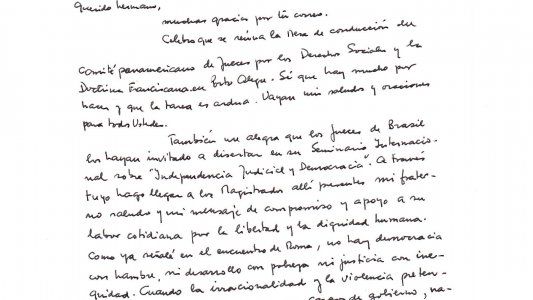 Querido hermano,
muchas gracias por tu correo.
Celebro que se reúna la Mesa de conducción del
Comité panamericano de Jueces por los Derechos Sociales y la
Doctrina Franciscana en Porto Alegre. Sé que hay mucho por
hacer y que la tarea es ardua. Vayan mis saludos y oraciones
para todos Ustedes.
También me alegra que los Jueces de Brasil
los hayan invitado a disertar en su Seminario Internacio-
nal sobre "Independencia Judicial y Democracia". A través
tuyo hago llegar a los Magistrados allí presentes mi frater-
no saludo y mi mensaje de compromiso y apoyo a su
labor cotidiana por la libertad y la dignidad humana.
Como ya señalé en el encuentro de Roma, no hay democracia
con hambre, ni desarrollo con pobreza ni justicia con ine-
quidad. Cuando la irracionalidad y la violencia preten-
de gobierno, na-